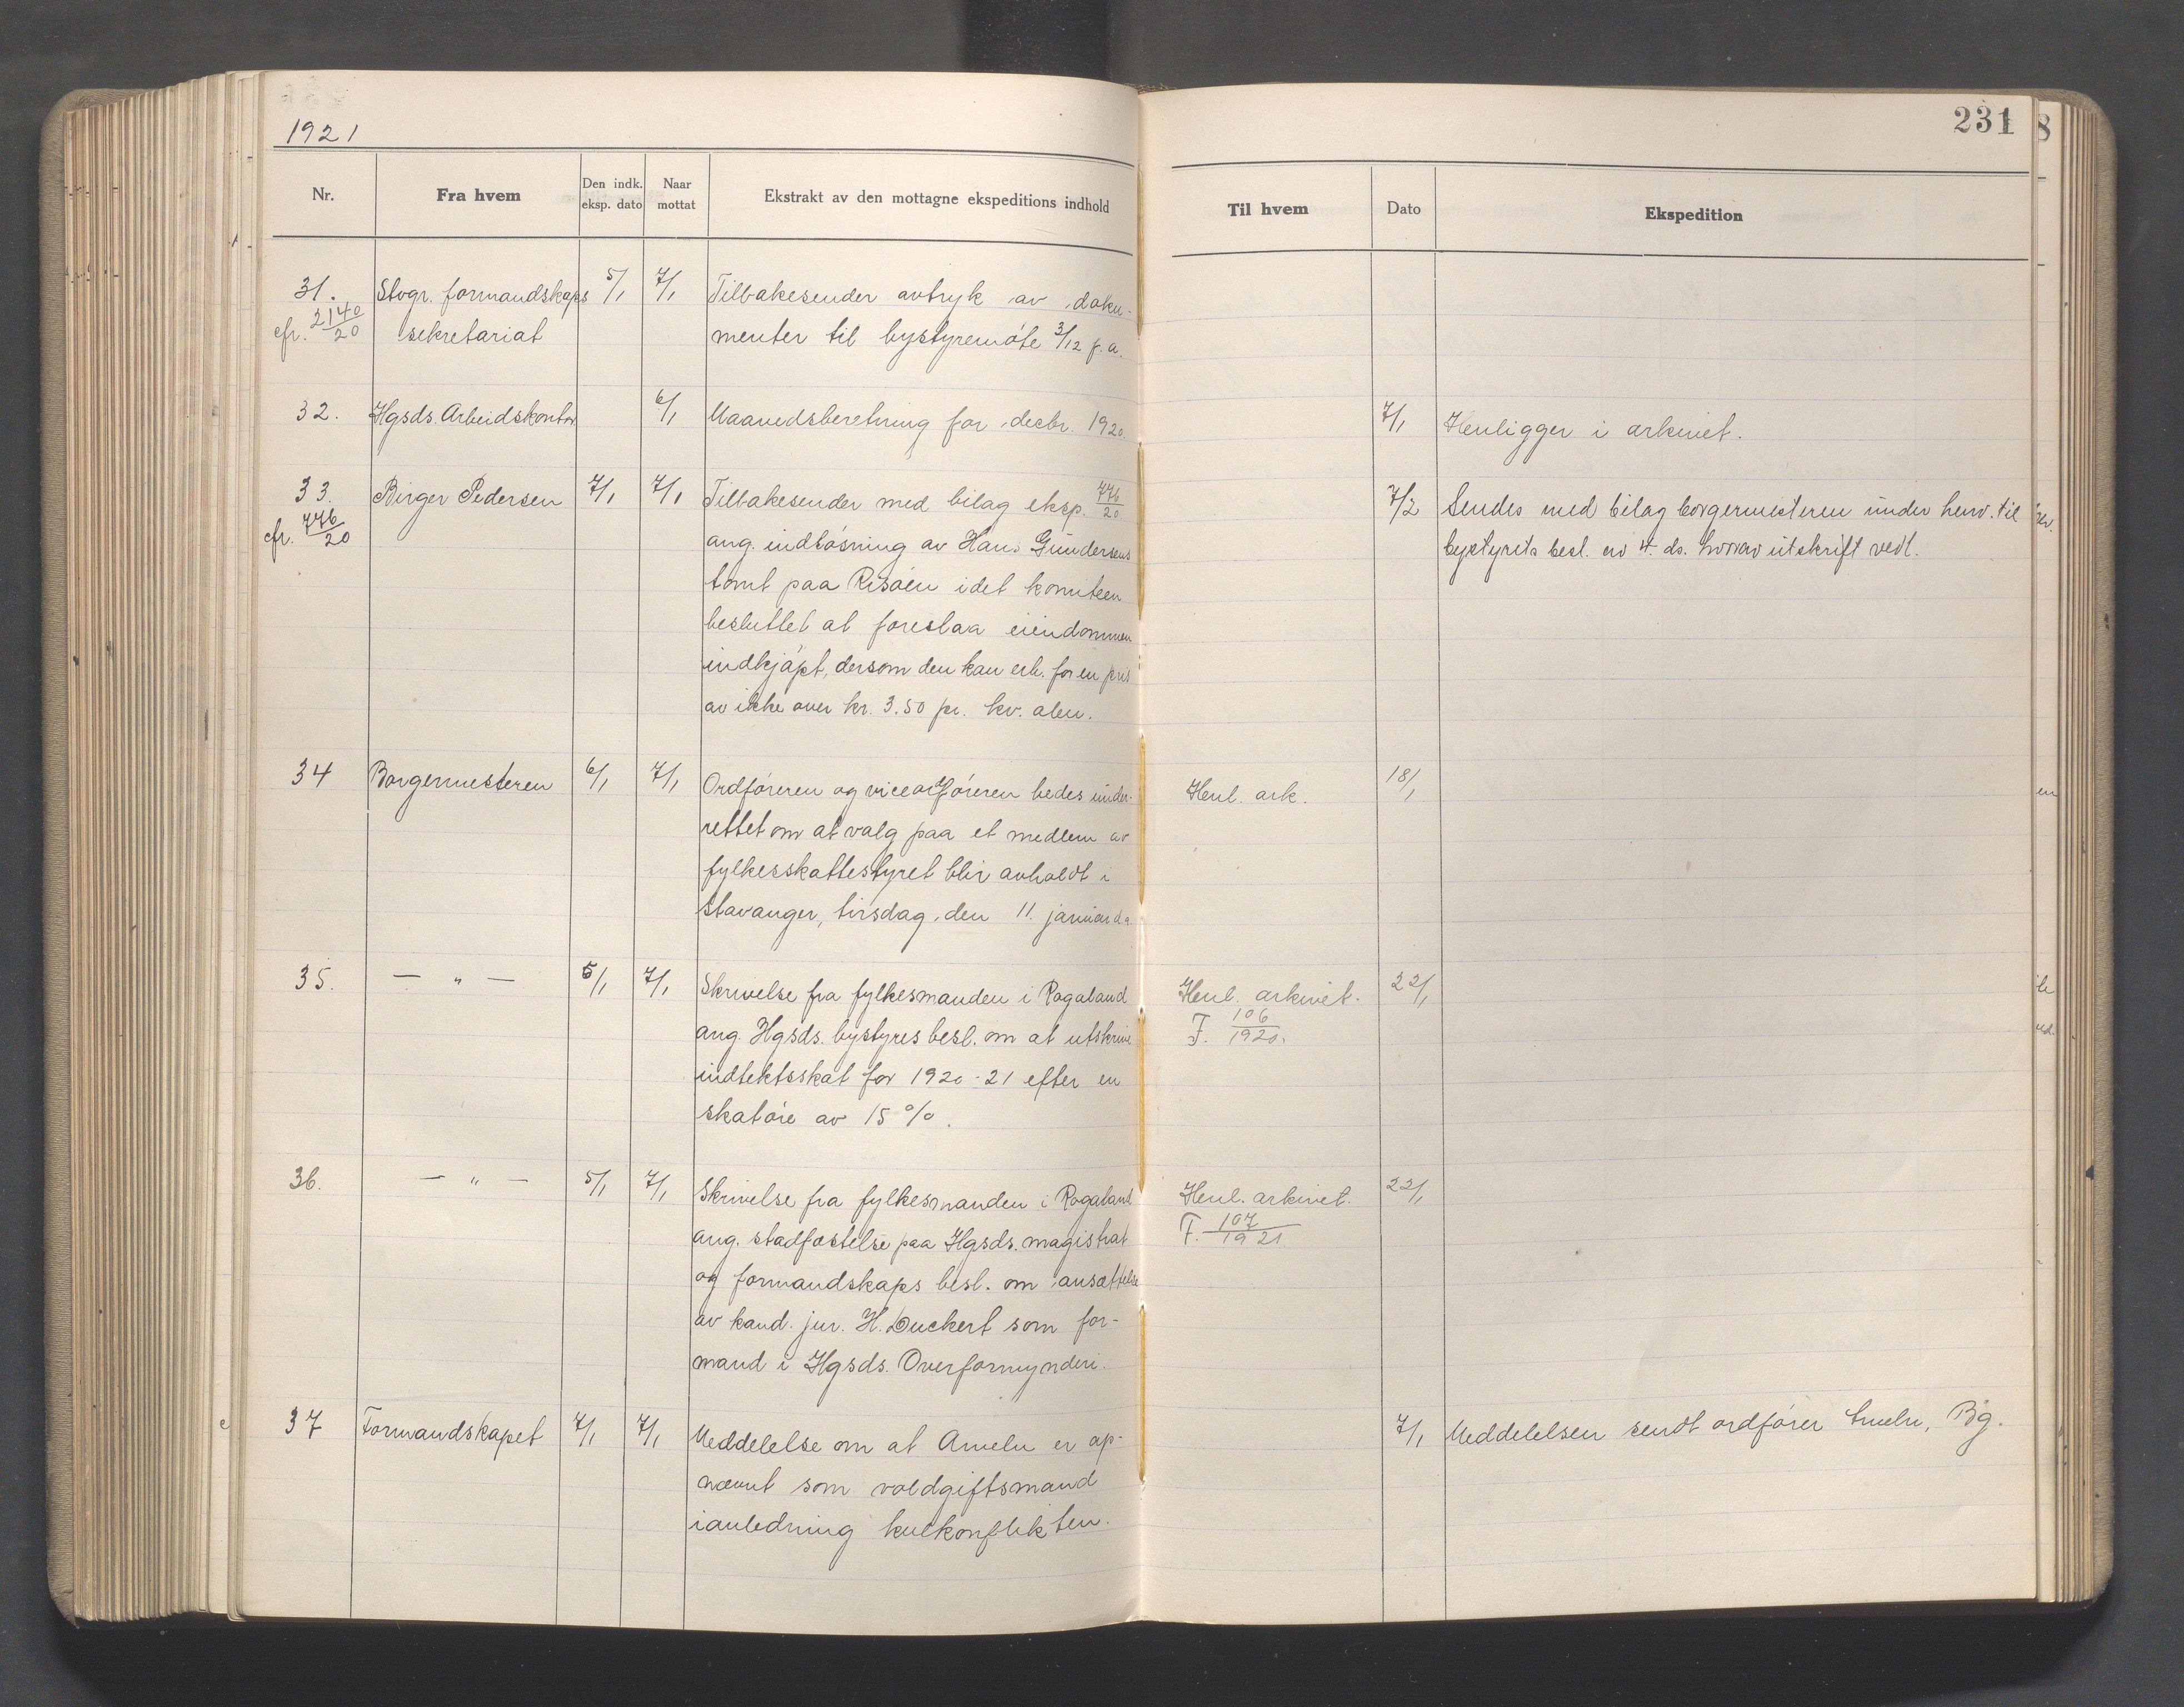 1921
231
Nr.
Fra hvem
Den indk. eksp. dato
Naar mottat
Ekstrakt av den mottagne ekspeditions indhold
Til hvem
Dato
Ekspedition
31. Stvgr. formandskaps 5/1 7/1 Tilbakesender avtryk av doku-
cfr. 2140/20 sekretariat menter til bystyremøte 3/12 f. a.
32. Hgsds. Arbeidskontor 6/1 Maanedsberetning for decbr. 1920. 7/1 Henligger i arkivet.
33. Birger Pedersen 7/1 7/1 Tilbakesender med bilag eksp. 776/20 7/2 Sendes med bilag borgermesteren under henv. til
cfr. 776/20 ang. indløsning av Hans Gundersens bystyrets besl. av 4. ds. hvorav utskrift vedl.
tomt paa Risøen idet komiteen
besluttet at foreslaa eiendommen
indkjøpt, dersom den kan erh. for en pris
av ikke over kr. 3.50 pr. kv. alen.
34 Borgermesteren 6/1 7/1 Ordføreren og viceordføreren bedes under- Henl. ark. 18/1
rettet om at valg paa et medlem av
fylkesskattestyret blir avholdt i
Stavanger, tirsdag, den 11. januar d. a.
35. — „ — 5/1 7/1 Skrivelse fra fylkesmanden i Rogaland Henl. arkivet. 22/1
ang. Hgsds. bystyres besl. om at utskrive F. 106/1920.
indtektsskat for 1920-21 efter en
skatøre av 15 %.
36. — „ — 5/1 7/1 Skrivelse fra fylkesmanden i Rogaland Henl. arkivet. 22/1
ang. stadfæstelse paa Hgsds. magistrat F. 107/1921
og formandskaps besl. om ansættelse
av kand. jur. H. Duckert som for-
mand i Hgsds. Overformynderi.
37 Formandskapet 7/1 7/1 Meddelelse om at Ameln er op- 7/1 Meddelelsen sendt ordfører Ameln, Bg.
nævnt som voldgiftsmand
i anledning kulkonflikten.